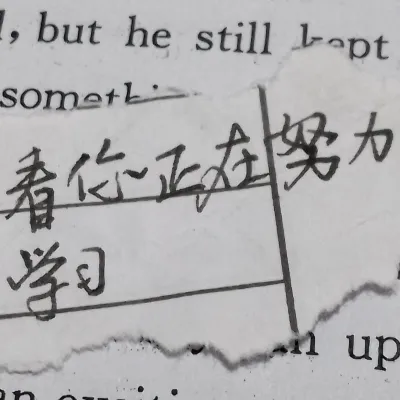 , but he still kept
someth
看你正在努力
学习
up